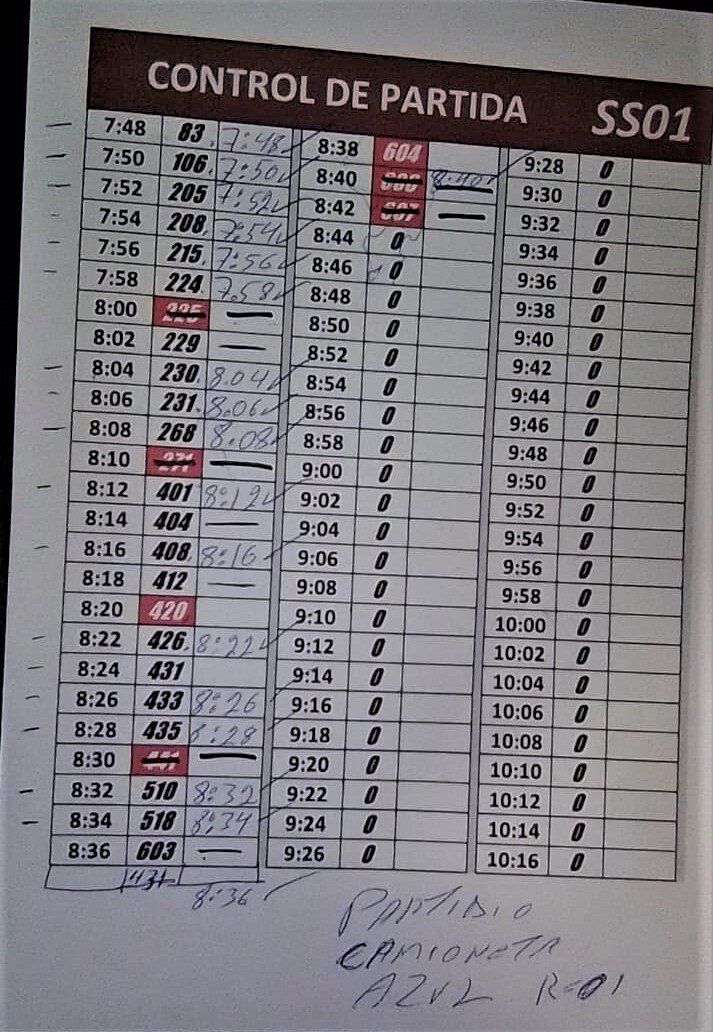 CONTROL DE PARTIDA SS01
7:48 83 7:48
7:50 106 7:50
7:52 205 7:52
7:54 208 7:54
7:56 215 7:56
7:58 224 7.58
8:00 225 —
8:02 229 —
8:04 230 8.04
8:06 231 8.06
8:08 268 8.08
8:10 271 —
8:12 401 8:12
8:14 404 —
8:16 408 8:16
8:18 412 —
8:20 420
8:22 426 8:22
8:24 431
8:26 433 8:26
8:28 435 8:28
8:30 441 —
8:32 510 8:32
8:34 518 8:34
8:36 603 —
431
8:36
8:38 604
8:40 8:40
8:42 607 —
8:44 0
8:46 0
8:48 0
8:50 0
8:52 0
8:54 0
8:56 0
8:58 0
9:00 0
9:02 0
9:04 0
9:06 0
9:08 0
9:10 0
9:12 0
9:14 0
9:16 0
9:18 0
9:20 0
9:22 0
9:24 0
9:26 0
9:28 0
9:30 0
9:32 0
9:34 0
9:36 0
9:38 0
9:40 0
9:42 0
9:44 0
9:46 0
9:48 0
9:50 0
9:52 0
9:54 0
9:56 0
9:58 0
10:00 0
10:02 0
10:04 0
10:06 0
10:08 0
10:10 0
10:12 0
10:14 0
10:16 0
PARTIDIO
CAMIONETA
AZUL R-01